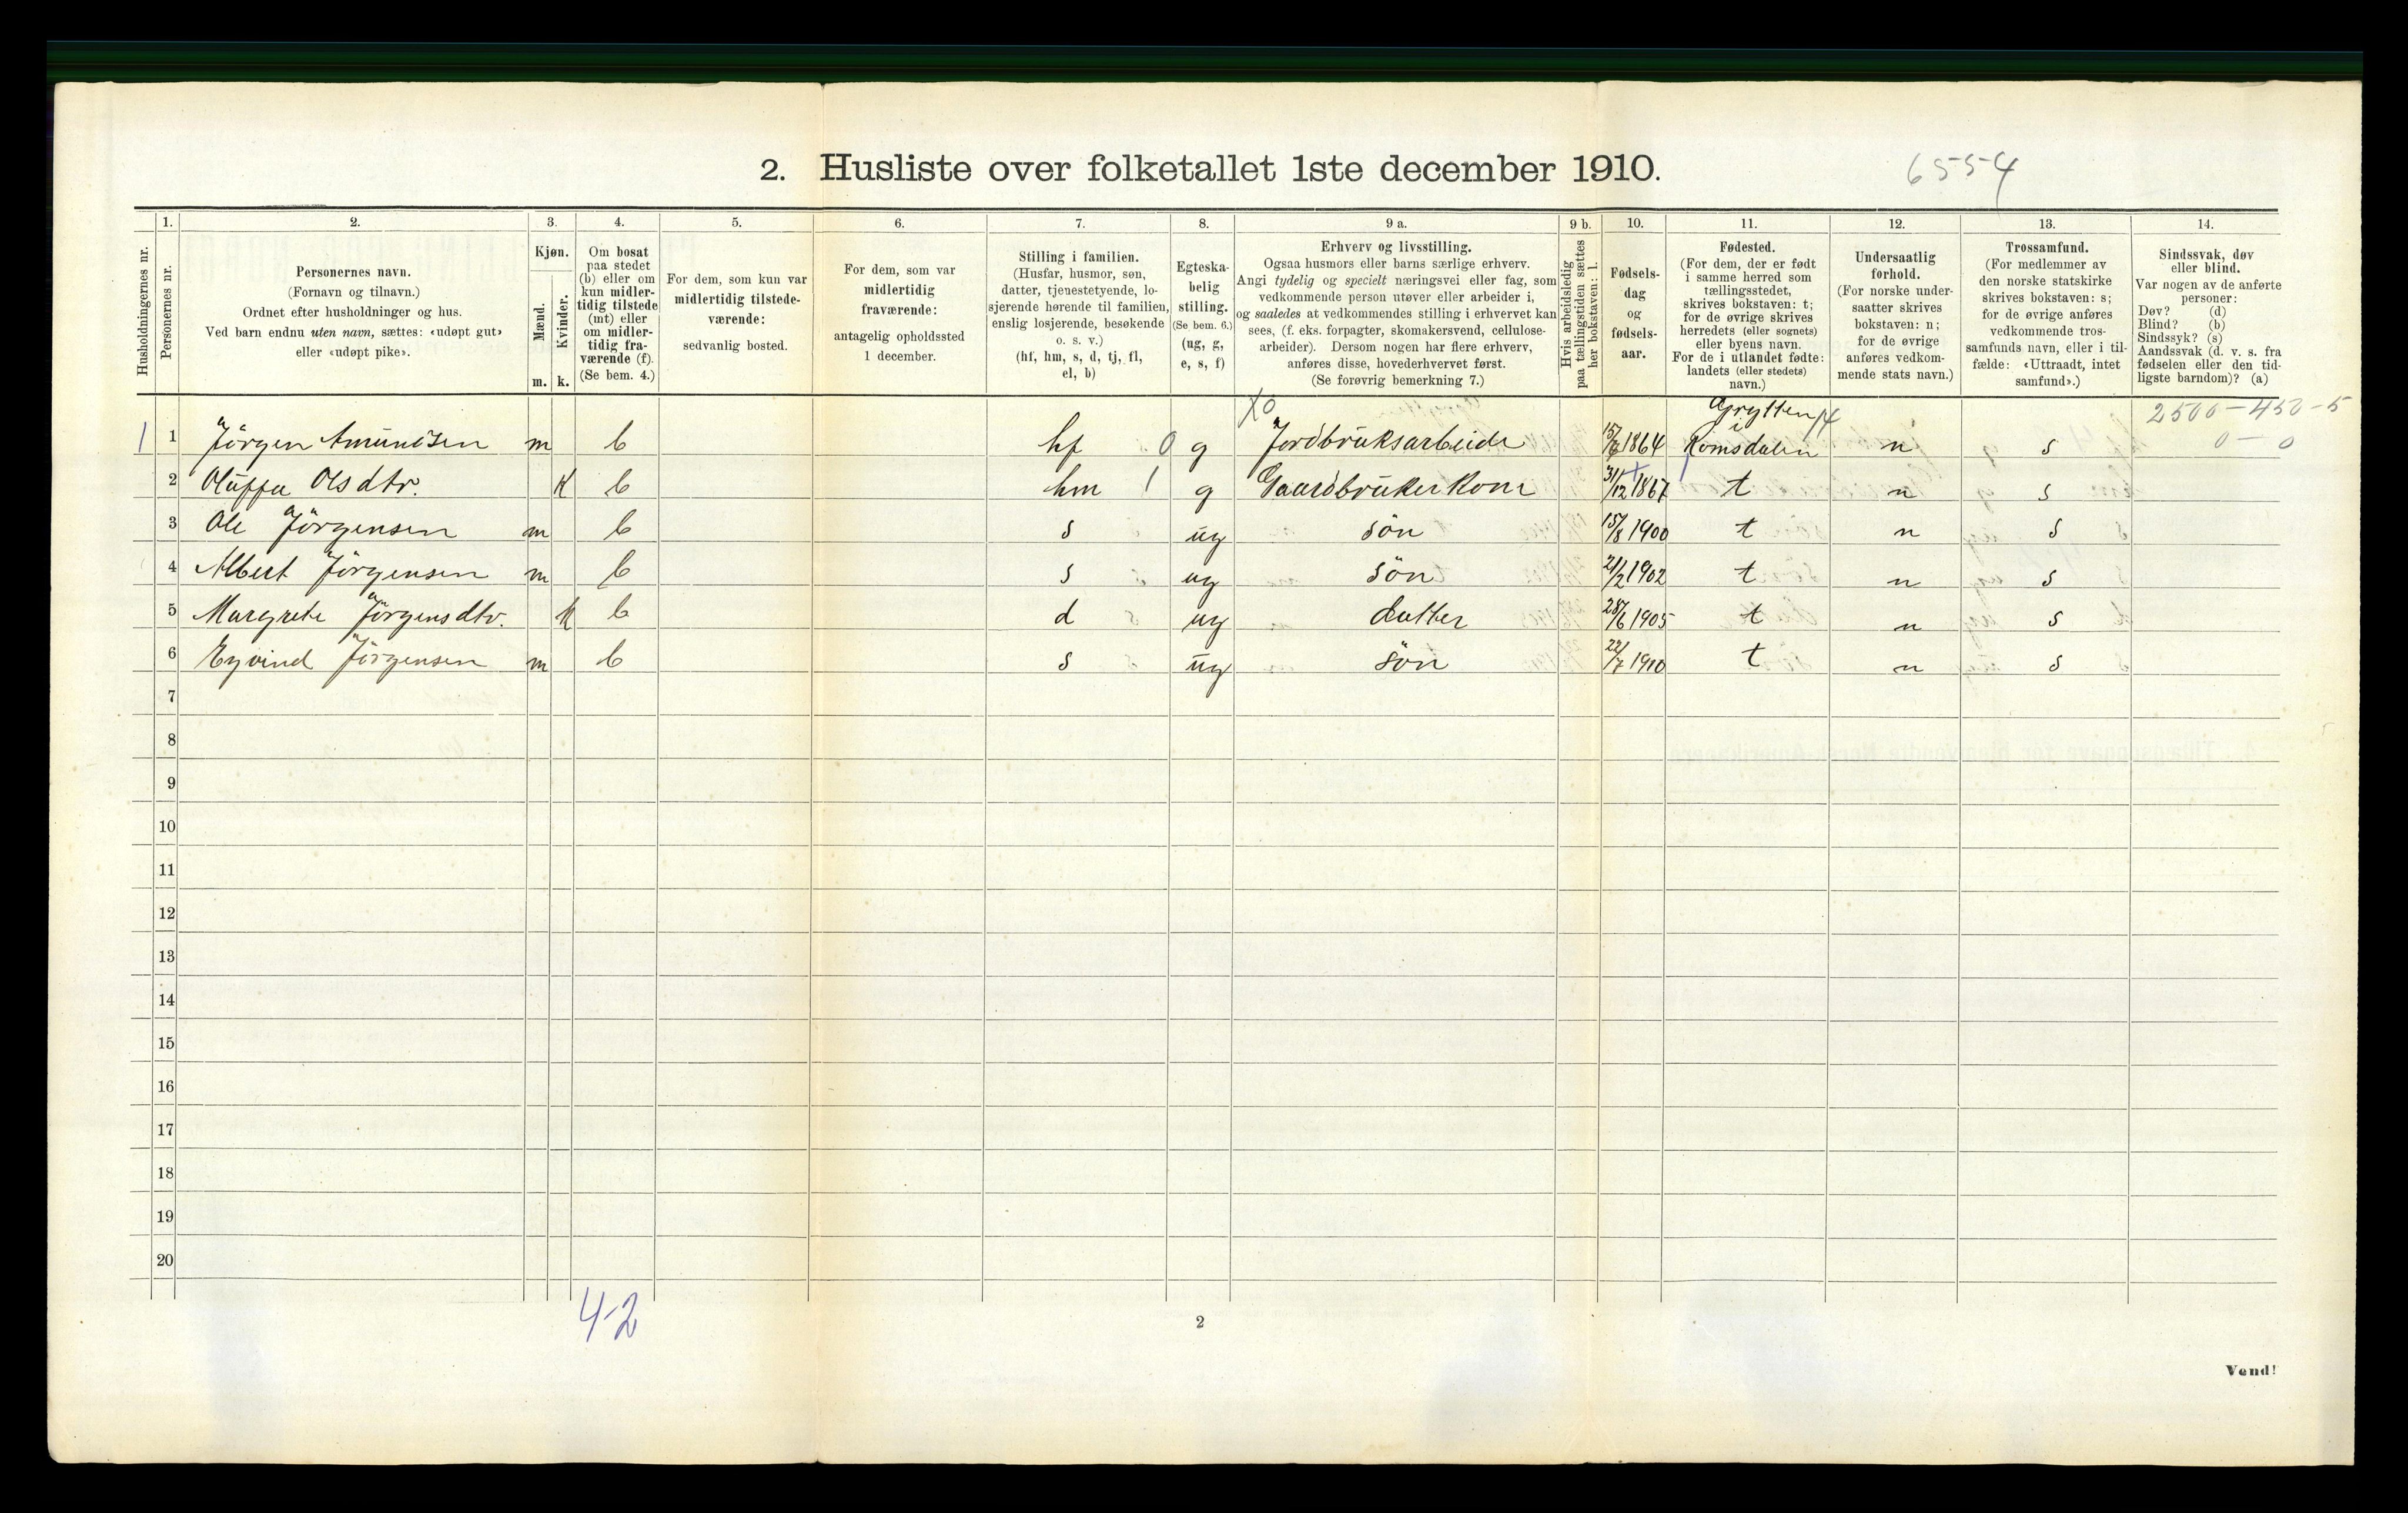 2. Husliste over folketallet 1ste december 1910.
6554
Husholdningernes nr.
1.
Personernes nr.
2.
Personernes navn.
(Fornavn og tilnavn.)
Ordnet efter husholdninger og hus.
Ved barn endnu uten navn, sættes: «udøpt gut»
eller «udøpt pike».
3.
Kjøn.
Mænd.
Kvinder.
m. k.
4.
Om bosat
paa stedet
(b) eller om
kun midler-
tidig tilstede
(mt) eller
om midler-
tidig fra-
værende (f).
(Se bem. 4.)
5.
For dem, som kun var
midlertidig tilstede-
værende:
sedvanlig bosted.
6.
For dem, som var
midlertidig
fraværende:
antagelig opholdssted
1 december.
7.
Stilling i familien.
(Husfar, husmor, søn,
datter, tjenestetyende, lo-
sjerende hørende til familien,
enslig losjerende, besøkende
o. s. v.)
(hf, hm, s, d, tj, fl,
el, b)
8.
Egteska-
belig
stilling.
(Se bem. 6.)
(ug, g,
e, s, f)
9 a.
Erhverv og livsstilling.
Ogsaa husmors eller barns særlige erhverv.
Angi tydelig og specielt næringsvei eller fag, som
vedkommende person utøver eller arbeider i,
og saaledes at vedkommendes stilling i erhvervet kan
sees, (f. eks. forpagter, skomakersvend, cellulose-
arbeider). Dersom nogen har flere erhverv,
anføres disse, hovederhvervet først.
(Se forøvrig bemerkning 7.)
9 b.
Hvis arbeidsledig
paa tællingstiden sættes
her bokstaven: l.
10.
Fødsels-
dag
og
fødsels-
aar.
11.
Fødested.
(For dem, der er født
i samme herred som
tællingsstedet,
skrives bokstaven: t;
for de øvrige skrives
herredets (eller sognets)
eller byens navn.
For de i utlandet fødte:
landets (eller stedets)
navn.)
12.
Undersaatlig
forhold.
(For norske under-
saatter skrives
bokstaven: n;
for de øvrige
anføres vedkom-
mende stats navn.)
13.
Trossamfund.
(For medlemmer av
den norske statskirke
skrives bokstaven: s;
for de øvrige anføres
vedkommende tros-
samfunds navn, eller i til-
fælde: «Uttraadt, intet
samfund».)
14.
Sindssvak, døv
eller blind.
Var nogen av de anførte
personer:
Døv? (d)
Blind? (b)
Sindssyk? (s)
Aandssvak (d. v. s. fra
fødselen eller den tid-
ligste barndom)? (a)
X0 Grytten 14 2500-450-5
1 1 Jörgen Amundsen m b hf 0 g Jordbruksarbeide 15/6 1864 i Romsdalen n s 0-0
2 Oluffa Olsdtr. K b hm 1 g Gaardbruker Kone 31/12 1867 t n s
3 Ole Jörgensen m b s ug sön 15/8 1900 t n s
4 Albert Jörgensen m b s ug sön 21/2 1902 t n s
5 Margrete Jörgensdtr. K b d ug datter 28/6 1905 t n s
6 Eyvind Jörgensen m b s ug sön 22/7 1910 t n s
7
8
9
10
11
12
13
14
15
16
17
18
19
20
4-2
2
Vend!